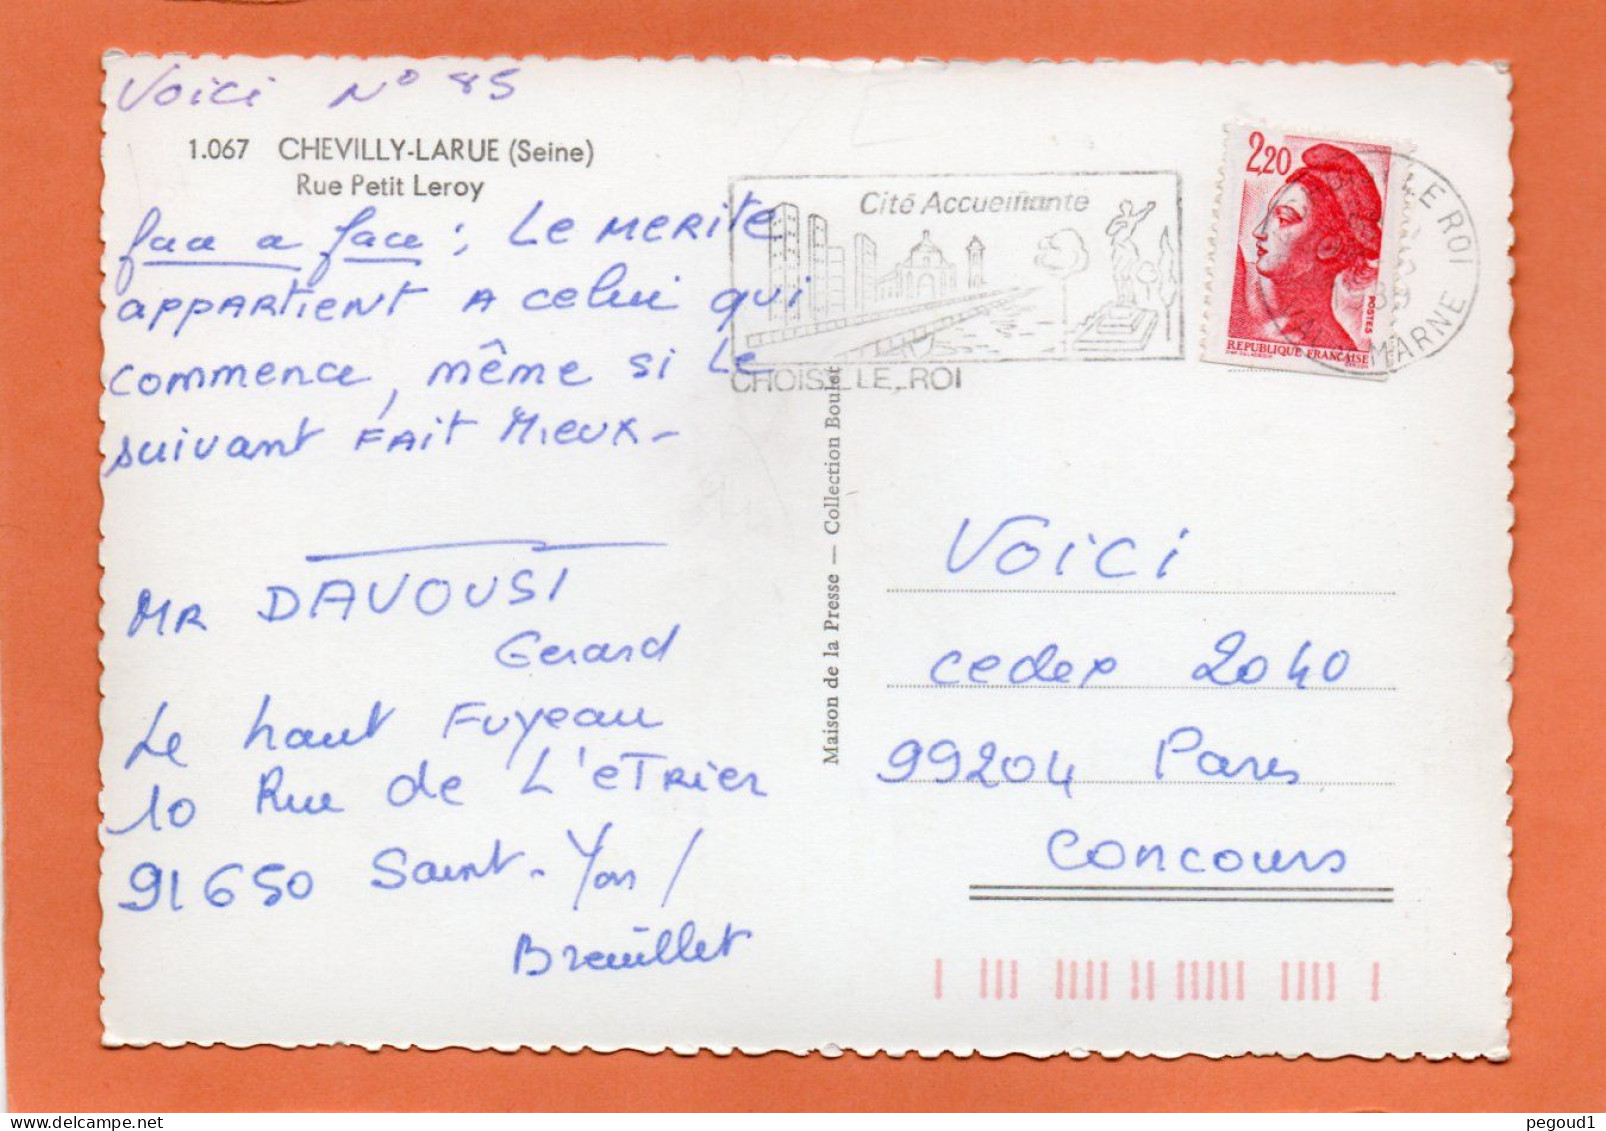 Voici N° 85
1.067 CHEVILLY-LARUE (Seine)
Rue Petit Leroy
face a face ; Le MERite
appARtient A celui qui
commence, même si Le
suivant FAit Mieux -
MR DAVOUSI
Gerard
Le haut Fuyeau
10 Rue de L'eTRier
91650 Saint-Yon /
Breuillet
Maison de la Presse — Collection Boulet
Cité Accueillante
CHOISY LE ROI
2,20
POSTES
REPUBLIQUE FRANÇAISE
LE ROI
MARNE
Voici
cedex 2040
99204 Paris
concours
pegoud1